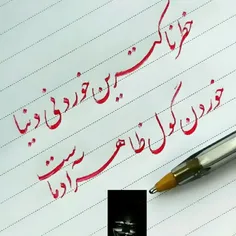 خطرناکترین خوردنی دنیا
خوردن گول ظاهر آدماست